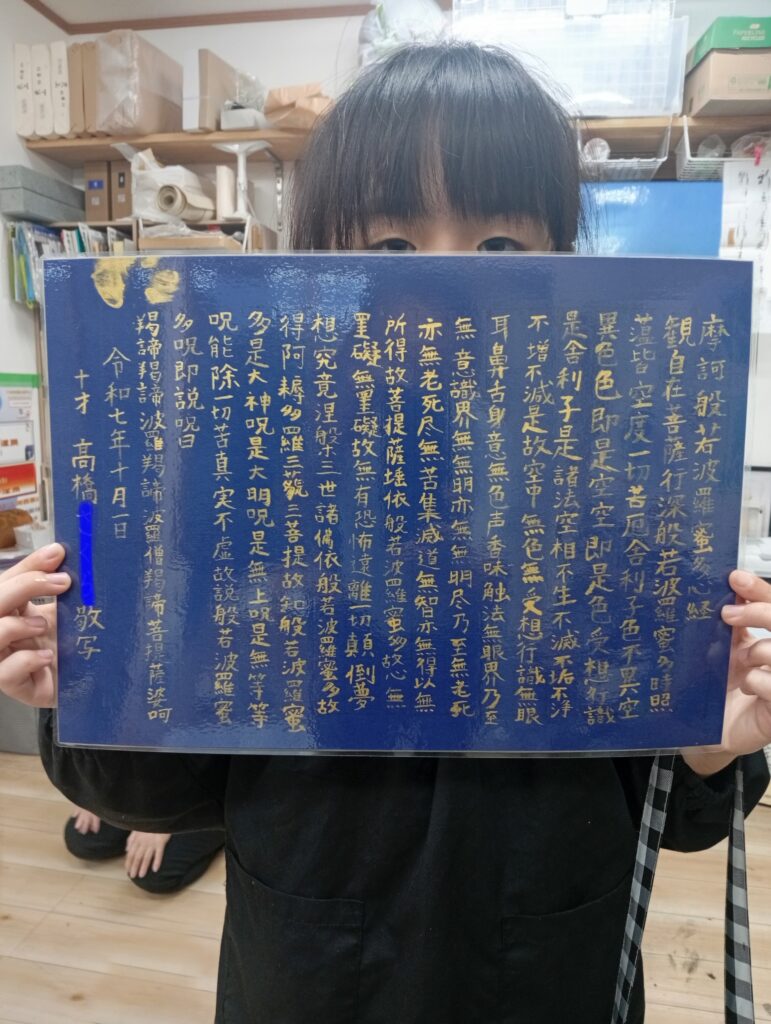 摩訶般若波羅蜜多心経
観自在菩薩行深般若波羅蜜多時照
薀皆空度一切苦厄舎利子色不異空
異色色即是空空即是色受想行識
是舎利子是諸法空相不生不滅不垢不浄
不増不減是故空中無色無受想行識無眼
耳鼻舌身意無色声香味触法無眼界乃至
無意識界無無明亦無無明尽乃至無老死
亦無老死尽無苦集滅道無智亦無得以無
所得故菩提薩埵依般若波羅蜜多故心無
罣礙無罣礙故無有恐怖遠離一切顛倒夢
想究竟涅槃三世諸仏依般若波羅蜜多故
得阿耨多羅三藐三菩提故知般若波羅蜜
多是大神呪是大明呪是無上呪是無等等
呪能除一切苦真実不虚故説般若波羅蜜
多呪即説呪曰
羯諦羯諦波羅羯諦波羅僧羯諦菩提薩婆呵
令和七年十月一日
十才 高橋 敬写